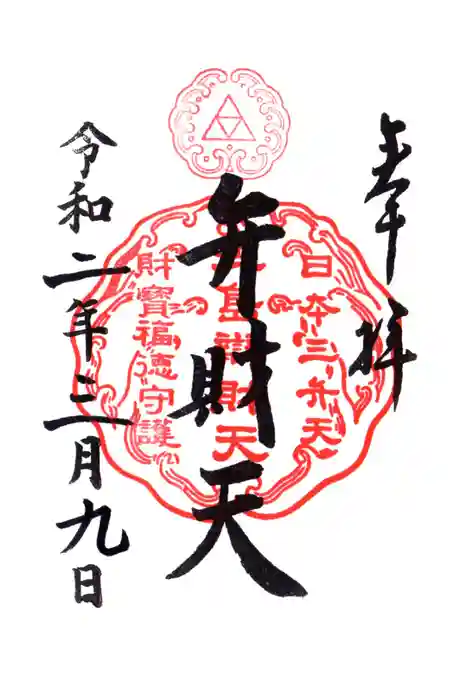 奉拝
日本三弁天
弁財天
財寶福徳守護
令和二年三月九日